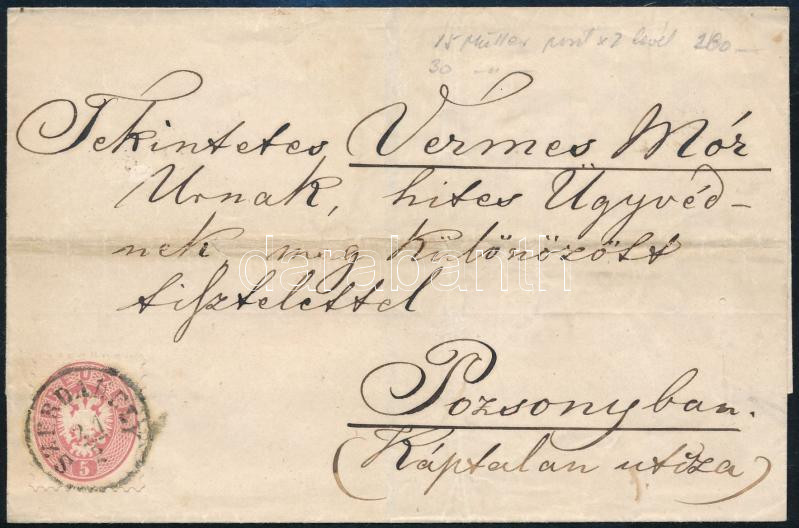 15 Müller pont x 2 levél 280 —
30 —"—
Tekintetes Vermes Mór
Urnak, hites Ügyvéd-
nek meg különözött
tisztelettel
darabanth
Pozsonyban.
(Káptalan utsza)
SZERDAHELY
5